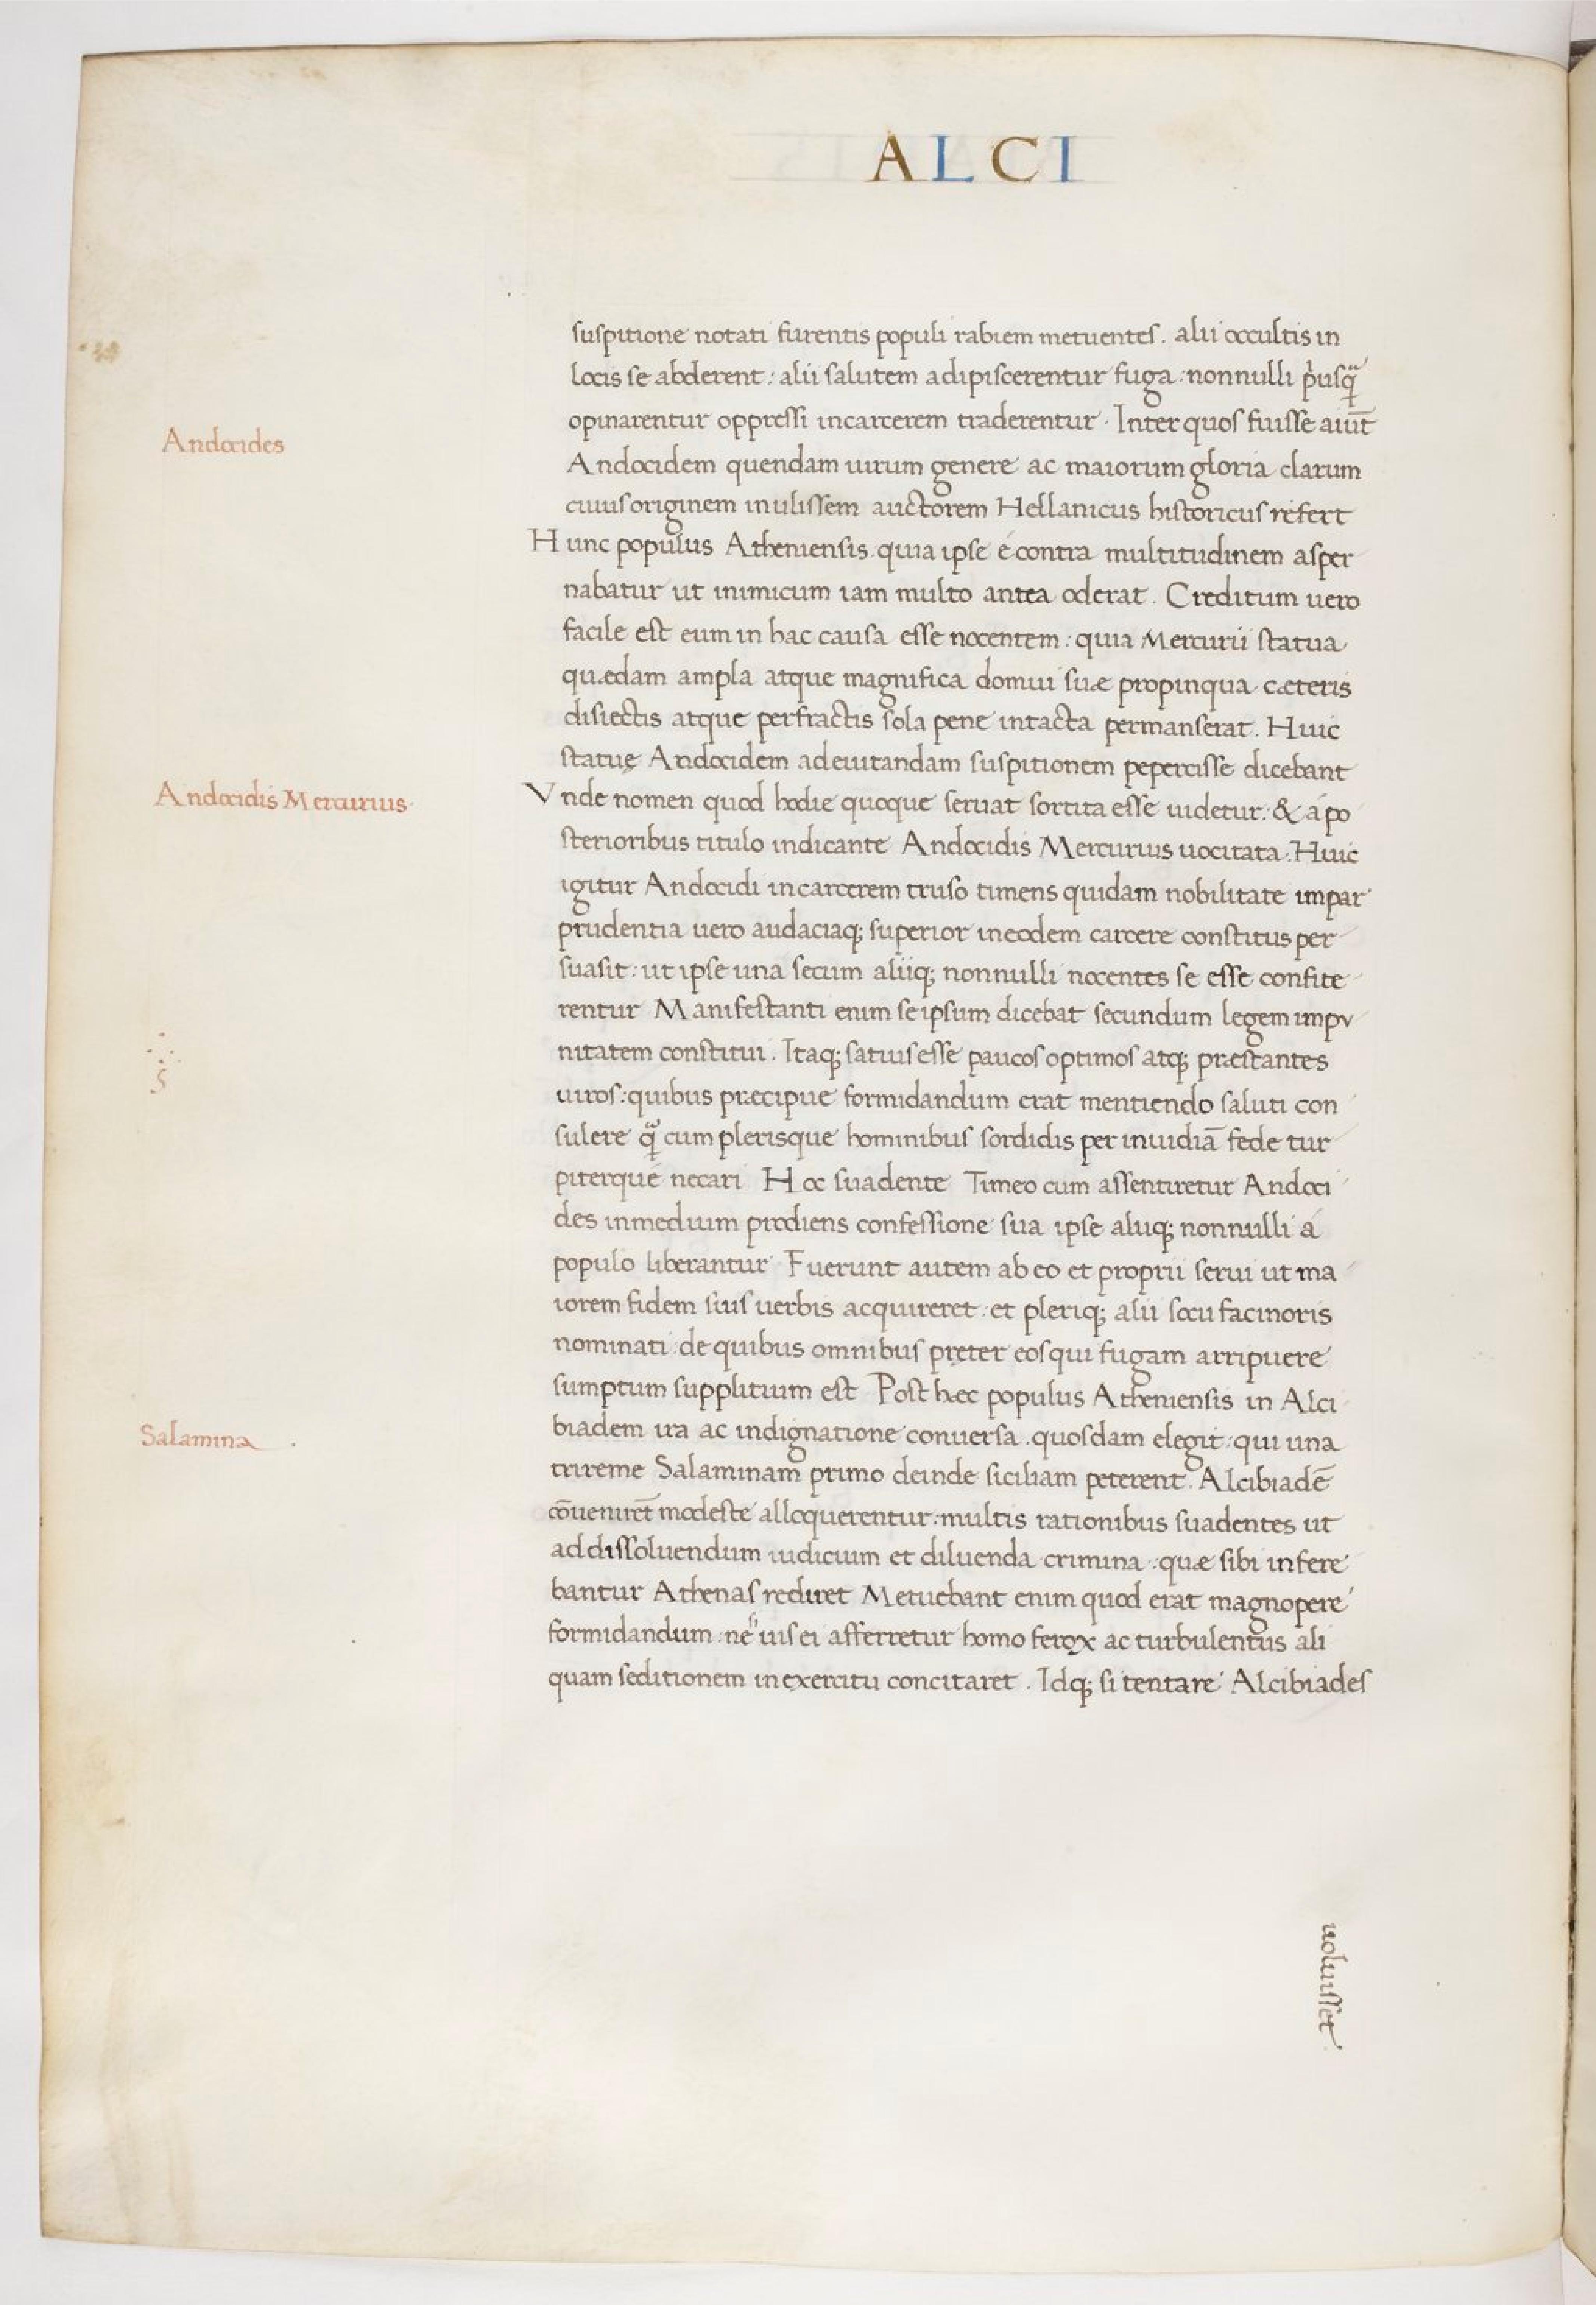 ALCI
suspitione notati furentis populi rabiem metuentes. alii occultis in
locis se abderent: alii salutem adipiscerentur fuga: nonnulli priusq̃
opinarentur oppressi incarcerem traderentur. Inter quos fuisse aiut̄
Andocides
Andocidem quendam uirum genere ac maiorum gloria clarum
cuius originem in ulissem auctorem Hellanicus historicus refert
Hunc populus Atheniensis. quia ipse é contra multitudinem asper
nabatur ut inimicum iam multo antea oderat. Creditum uero
facile est eum in hac causa esse nocentem: quia Mercurii statua
quædam ampla atque magnifica domui suæ propinqua cæteris
disiectis atque perfractis sola pene intacta permanserat. Huic
statuę Andocidem adeuitandam suspitionem pepercisse dicebant
Andocidis Mercurius
Vnde nomen quod hodie quoque seruat sortita esse uidetur: & á po
sterioribus titulo indicante Andocidis Mercurius uocitata. Huic
igitur Andocidi incarcerem truso timens quidam nobilitate impar
prudentia uero audaciaq; superior ineodem carcere constitus per
suasit: ut ipse una secum aliiq; nonnulli nocentes se esse confite
rentur Manifestanti enim se ipsum dicebat secundum legem impv
nitatem constitui. Itaq; satius esse paucos optimos atq; præstantes
uiros: quibus præcipue formidandum erat mentiendo saluti con
sulere q̃ cum plerisque hominibus sordidis per inuidiā fede tur
piterque necari Hoc suadente Timeo cum assentiretur Andoci
des inmedium prodiens confessione sua ipse aliiq; nonnulli á
populo liberantur Fuerunt autem ab eo et proprii serui ut ma
iorem fidem suis uerbis acquireret: et pleriq; alii socii facinoris
nominati: de quibus omnibus pręter eos qui fugam arripuere
sumptum supplitium est Post hæc populus Atheniensis in Alci
Salamina
biadem ira ac indignatione conuersa. quosdam elegit: qui una
trireme Salaminam primo deinde siciliam peterent. Alcibiadē
cōuenirēt modeste alloquerentur: multis rationibus suadentes ut
addissoluendum iudicium et diluenda crimina: quæ sibi infere
bantur Athenas rediret Metuebant enim quod erat magnopere
formidandum: ne si uis ei afferretur homo ferox ac turbulentus ali
quam seditionem inexercitu concitaret. Idq; si tentare Alcibiades
uoluisset